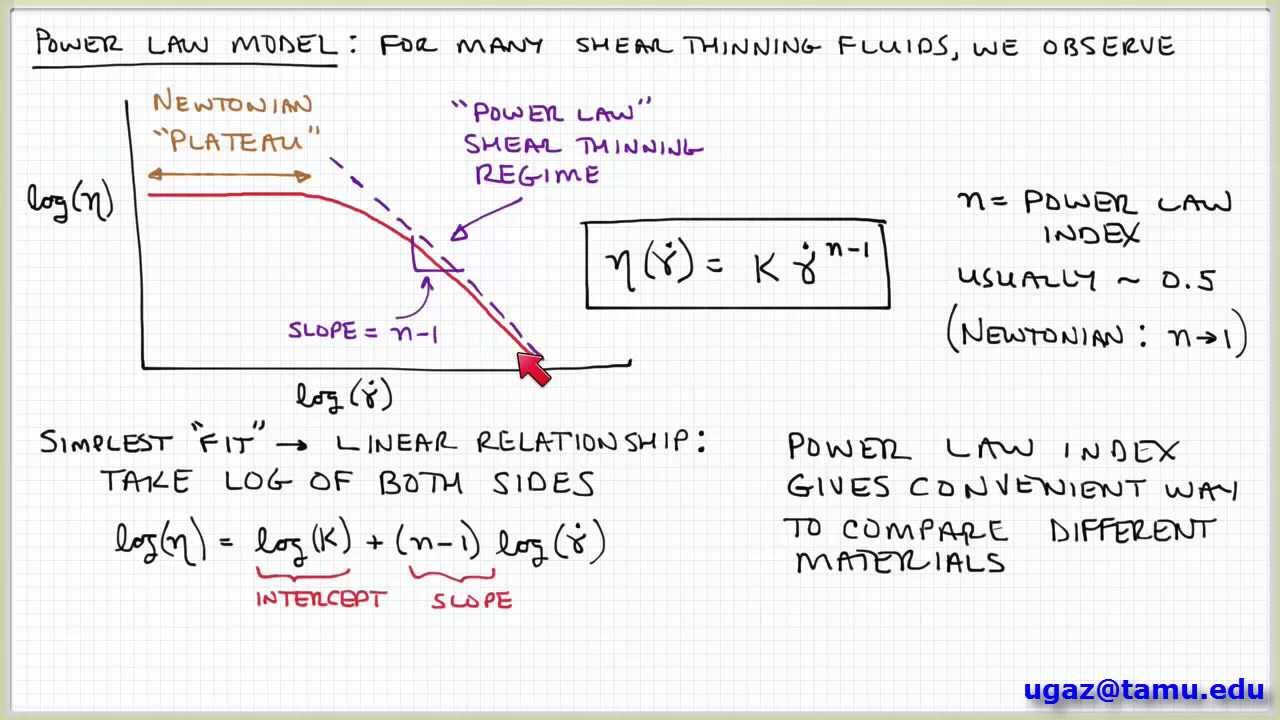 POWER LAW MODEL: FOR MANY SHEAR THINNING FLUIDS, WE OBSERVE
NEWTONIAN
"PLATEAU"
"POWER LAW"
SHEAR THINNING
REGIME
log(η)
SLOPE = n-1
log(γ̇)
η(γ̇) = K γ̇^(n-1)
n = POWER LAW
INDEX
USUALLY ~ 0.5
(NEWTONIAN: n→1)
SIMPLEST "FIT" → LINEAR RELATIONSHIP:
TAKE LOG OF BOTH SIDES
log(η) = log(K) + (n-1) log(γ̇)
INTERCEPT SLOPE
POWER LAW INDEX
GIVES CONVENIENT WAY
TO COMPARE DIFFERENT
MATERIALS
ugaz@tamu.edu